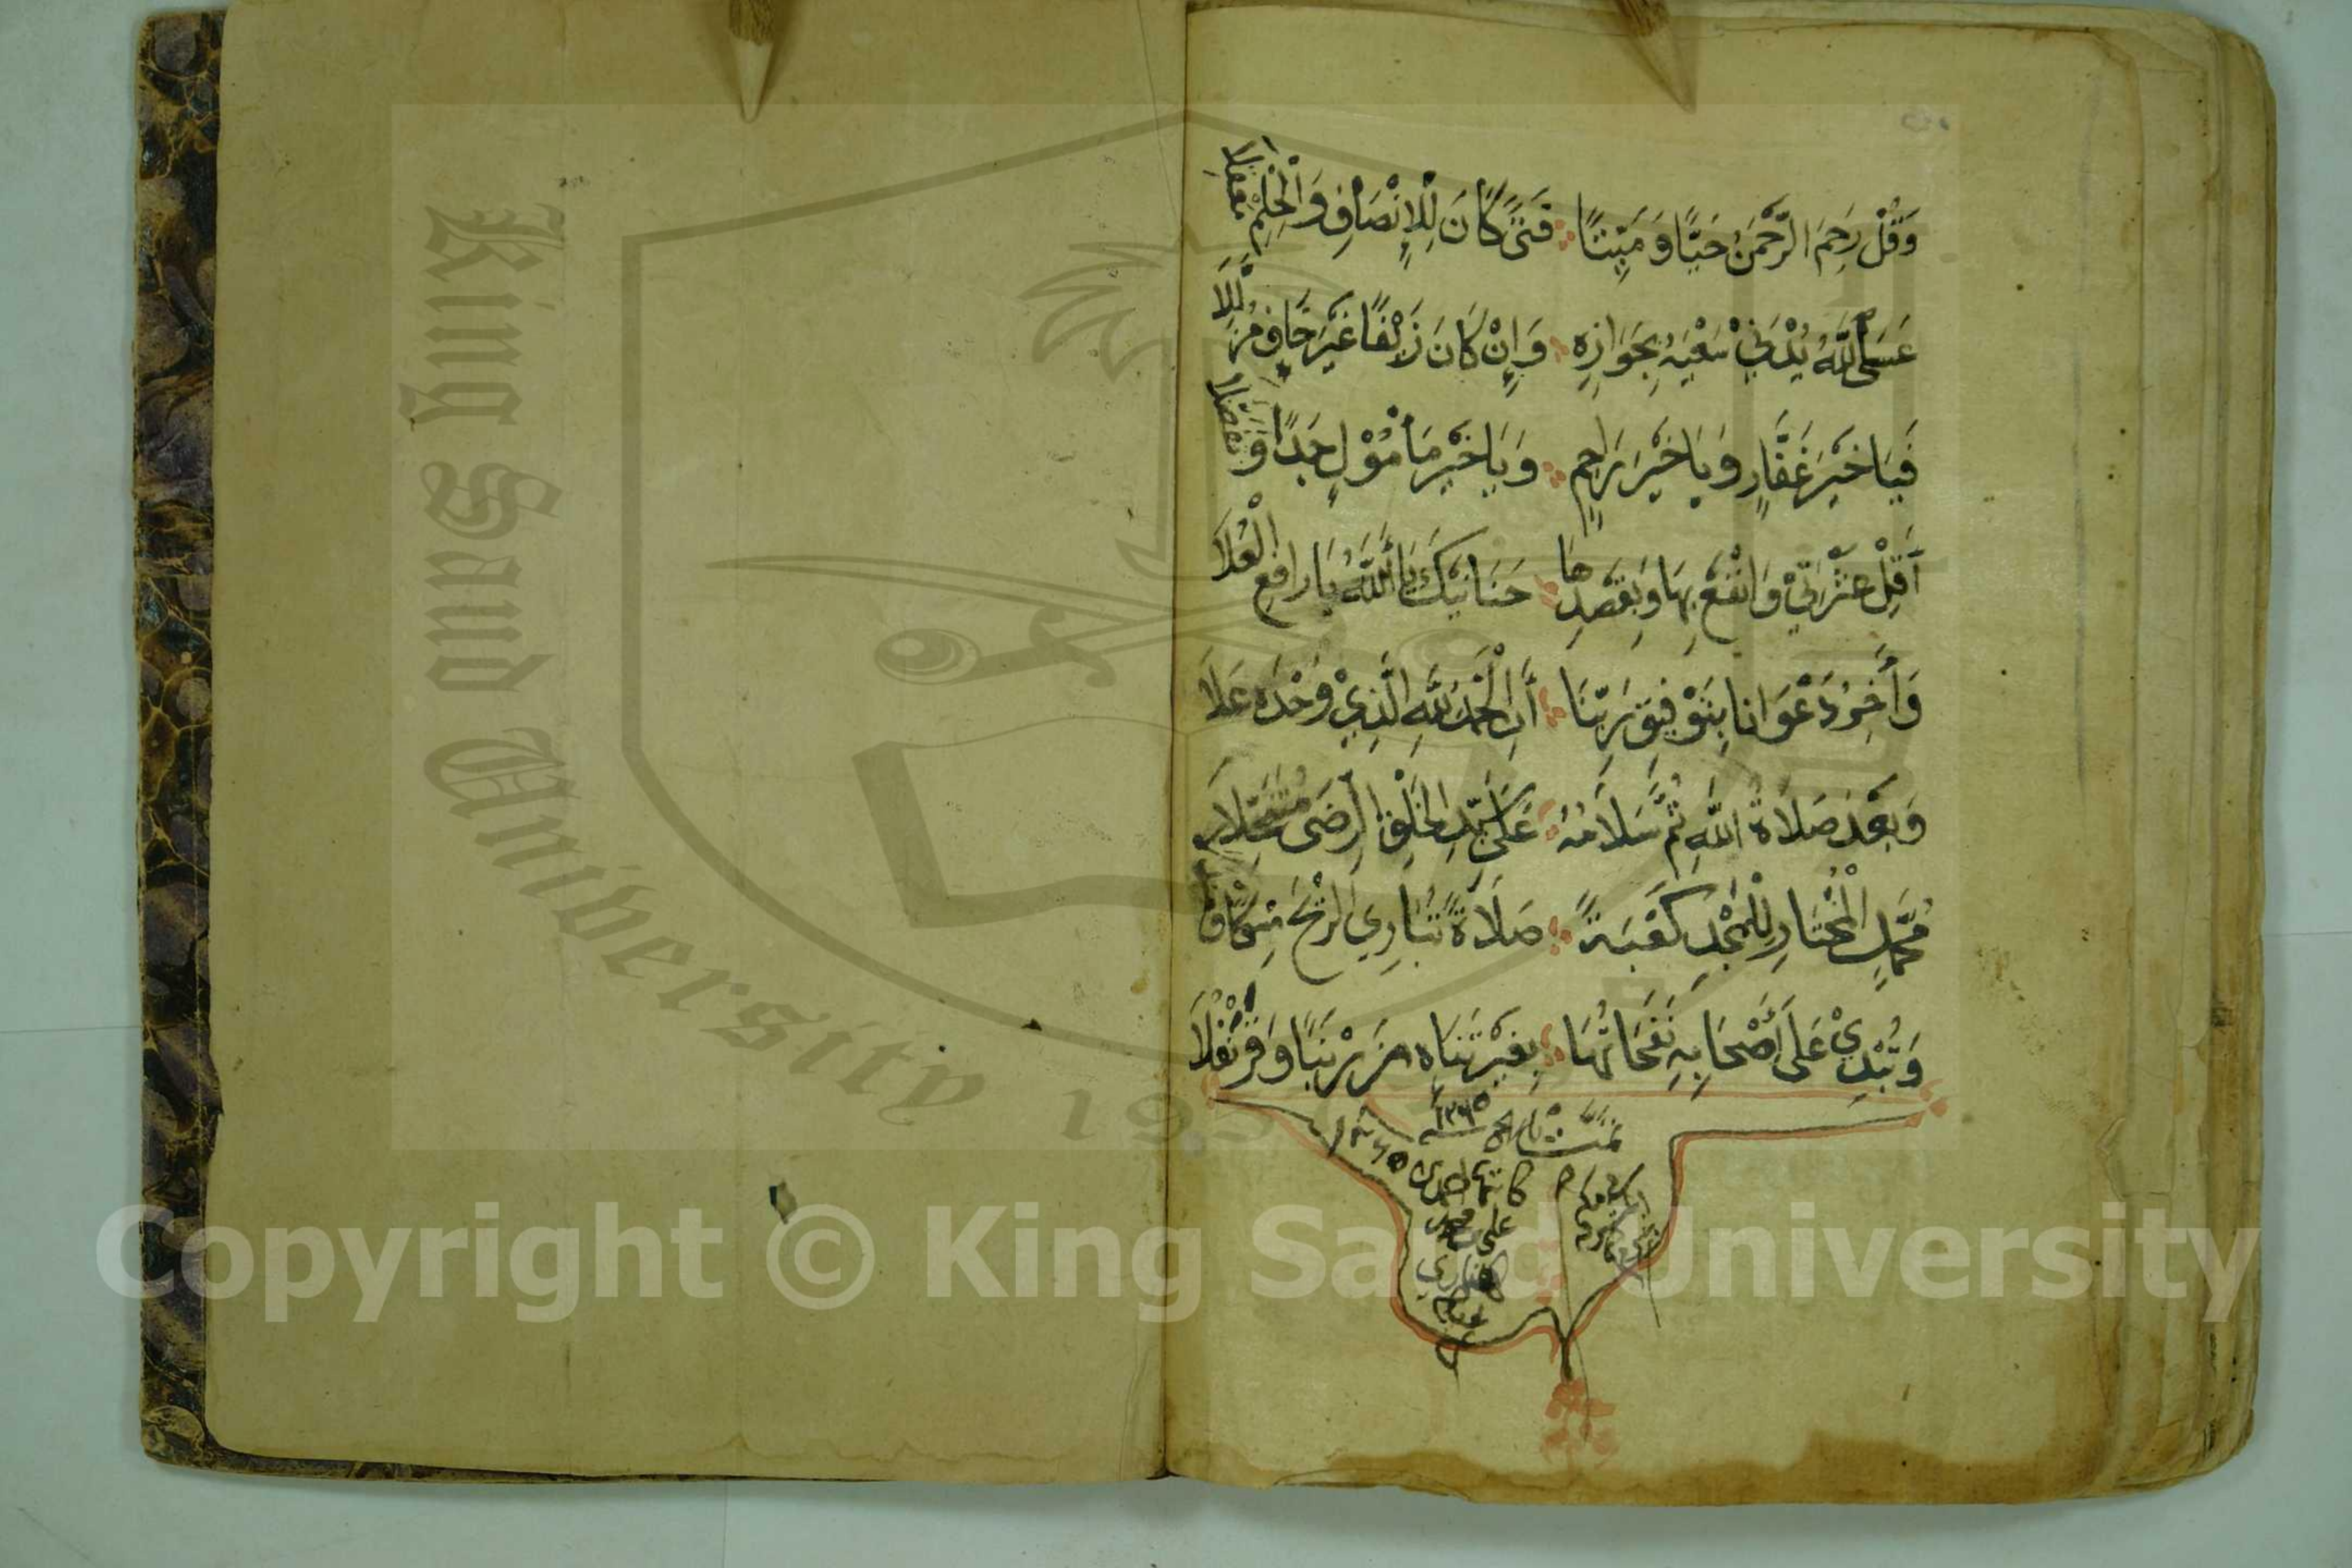 وَقُلْ رَحِمَ الرَّحْمَنُ حَيًّا وَمَيِّتًا فَتًى كَانَ لِلْإِنْصَافِ وَالْحِلْمِ مَعْقِلَا
عَسَى اللَّهُ يُدْنِي سَعْيَهُ بِجَوَازِهِ وَإِنْ كَانَ زَيْفًا غَيْرَ خَافٍ مُزَلَّلَا
فَيَا خَيْرَ غَفَّارٍ وَيَا خَيْرَ رَاحِمٍ وَيَا خَيْرَ مَأْمُوْلٍ جَدًا وَتَفَضُّلَا
أَقِلْ عَثْرَتِيْ وَانْفَعْ بِهَا وَبِقَصْدِهَا حَنَانَيْكَ يَا أَللَّهُ يَا رَافِعَ الْعُلَا
وَأٰخِرُ دَعْوَانا بِتَوْفِيقِ رَبِّنَا أَنِ الْحَمْدُ لِلَّهِ الَّذِيْ وَحْدَهُ عَلَا
وَبَعْدُ صَلَاةُ اللَّهِ ثُمَّ سَلَامُهُ عَلَى سَيِّدِ الْخَلْقِ الرِّضَى مُتَنَخِّلَا
مُحَمَّدٍ الْمُخْتَارِ لِلْمَجْدِ كَعْبَةً صَلَاةً تُبَارِي الرِّيْحَ مِسْكًا وَ
وَتُبْدِيْ عَلَى أَصْحَابِهِ نَفَحَاتُهَا بِغَيْرِ تَنَاهٍ زَرْنَبًا وَقَرَنْفُلَا
تمت ١٢٦٥
١٢٦٥
كاتبها
علي
King Saud University 195
Copyright © King Saud University